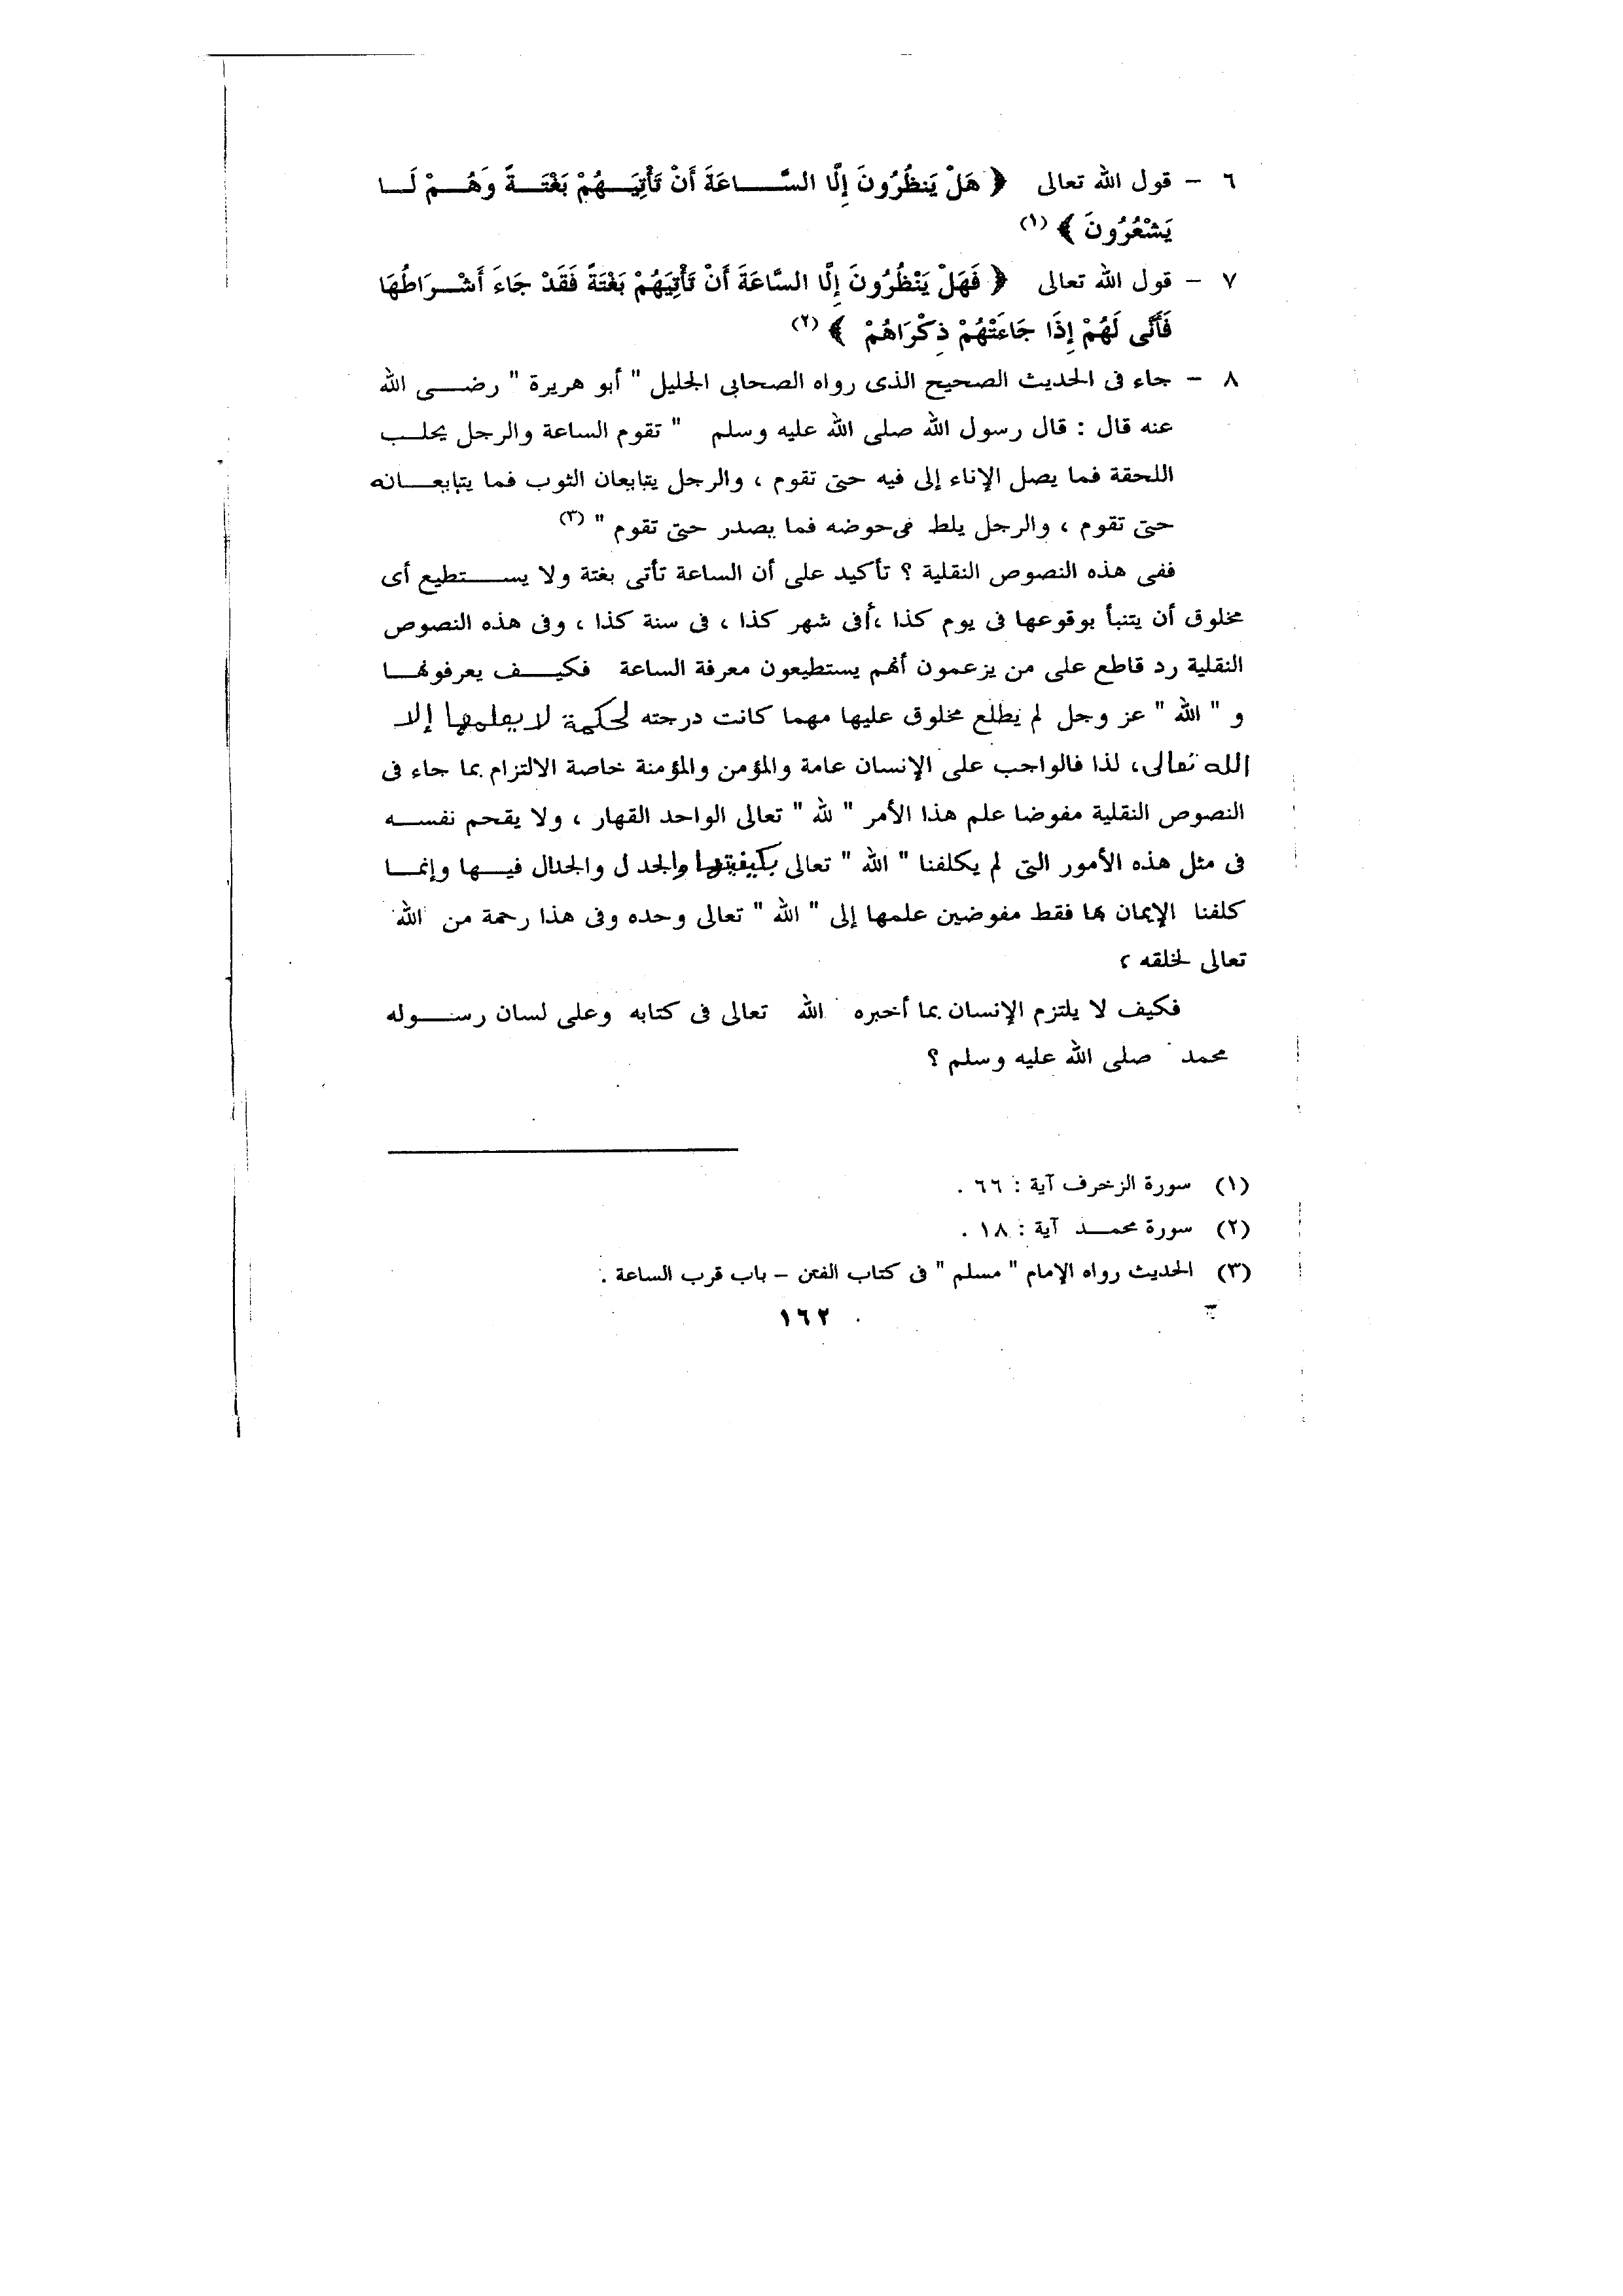 ٦ – قول الله تعالى ﴿ هَلْ يَنظُرُونَ إِلَّا السَّاعَةَ أَنْ تَأْتِيَهُمْ بَغْتَةً وَهُمْ لَا
يَشْعُرُونَ ﴾ (١)
٧ – قول الله تعالى ﴿ فَهَلْ يَنْظُرُونَ إِلَّا السَّاعَةَ أَنْ تَأْتِيَهُمْ بَغْتَةً فَقَدْ جَاءَ أَشْرَاطُهَا
فَأَنَّى لَهُمْ إِذَا جَاءَتْهُمْ ذِكْرَاهُمْ ﴾ (٢)
٨ – جاء فى الحديث الصحيح الذى رواه الصحابى الجليل " أبو هريرة " رضى الله
عنه قال : قال رسول الله صلى الله عليه وسلم " تقوم الساعة والرجل يحلب
اللحقة فما يصل الإناء إلى فيه حتى تقوم ، والرجل يتابعان الثوب فما يتابعانه
حتى تقوم ، والرجل يلط فى حوضه فما يصدر حتى تقوم " (٣)
ففى هذه النصوص النقلية ؟ تأكيد على أن الساعة تأتى بغتة ولا يستطيع أى
مخلوق أن يتنبأ بوقوعها فى يوم كذا ،أفى شهر كذا ، فى سنة كذا ، وفى هذه النصوص
النقلية رد قاطع على من يزعمون أنهم يستطيعون معرفة الساعة فكيف يعرفونها
و " الله " عز وجل لم يطلع مخلوق عليها مهما كانت درجته لحكمة لا يعلمها إلا
الله تعالى، لذا فالواجب على الإنسان عامة والمؤمن والمؤمنة خاصة الالتزام بما جاء فى
النصوص النقلية مفوضا علم هذا الأمر " لله " تعالى الواحد القهار ، ولا يقحم نفسه
فى مثل هذه الأمور التى لم يكلفنا " الله " تعالى بكيفيتها والجدل والجدال فيها وإنما
كلفنا الإيمان بها فقط مفوضين علمها إلى " الله " تعالى وحده وفى هذا رحمة من الله
تعالى لخلقه ؛
فكيف لا يلتزم الإنسان بما أخبره الله تعالى فى كتابه وعلى لسان رسوله
محمد صلى الله عليه وسلم ؟
(١) سورة الزخرف آية : ٦٦ .
(٢) سورة محمد آية : ١٨ .
(٣) الحديث رواه الإمام " مسلم " فى كتاب الفتن – باب قرب الساعة .
١٦٢